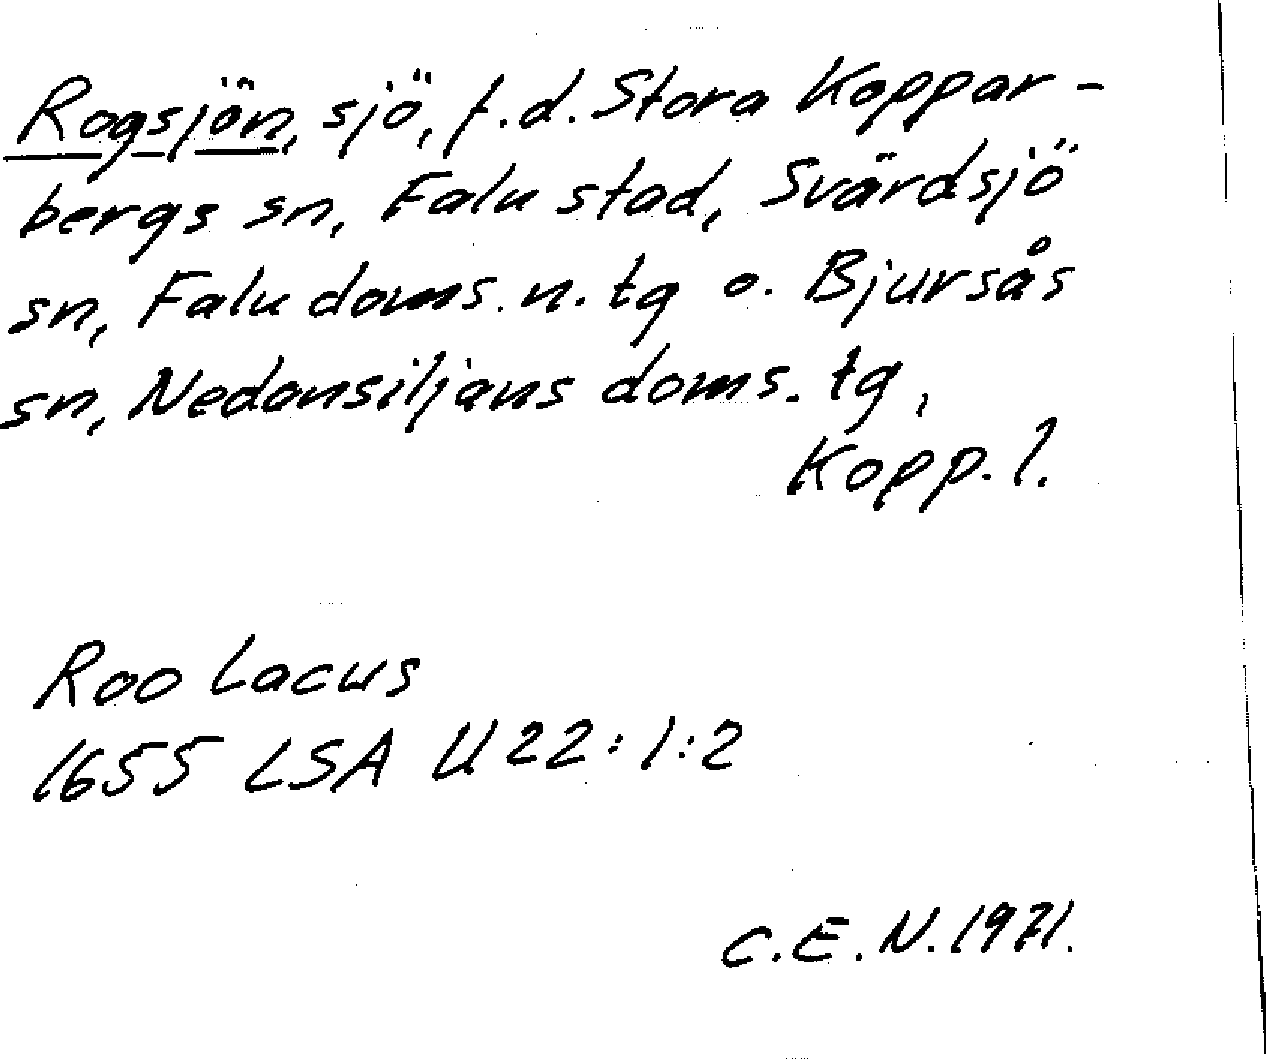 Rogsjön, sjö, f.d. Stora Koppar-
bergs sn, Falu stad, Svärdsjö
sn, Falu doms. n. tg o. Bjursås
sn, Nedansiljans doms. tg,
Kopp. l.
Roo Lacus
1655 LSA U 22:1:2
C.E.N. 1971.